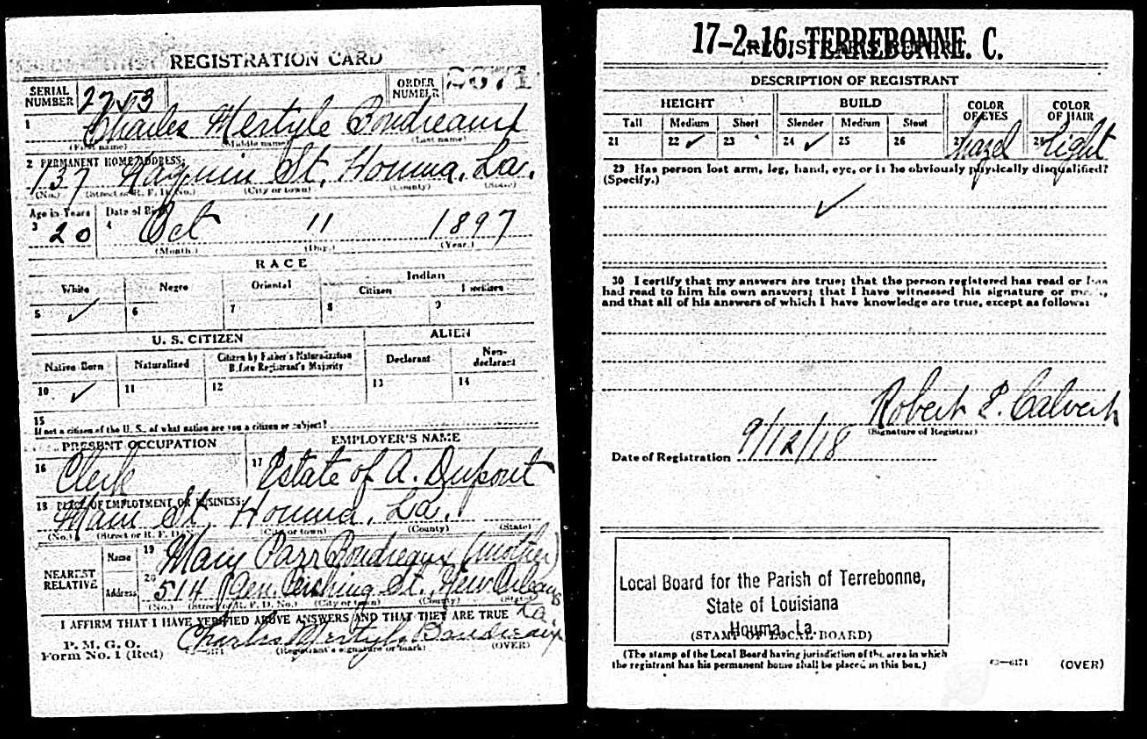 REGISTRATION CARD
SERIAL NUMBER 2753 ORDER NUMBER 2071
1 Charles Mertyle Boudreaux
(First name) (Middle name) (Last name)
2 PERMANENT HOME ADDRESS:
137 St, Houma, La.
(No.) (Street or R. F. D. No.) (City or town) (County) (State)
Age in Years Date of Birth
3 20 4 Oct 11 1897
(Month.) (Day.) (Year.)
RACE
White Negro Oriental Indian
Citizen
5 ✓ 6 7 8 9
U. S. CITIZEN ALIEN
Native Born Naturalized Citizen by Father's Naturalization Before Registrant's Majority Declarant Non-declarant
10 ✓ 11 12 13 14
15
If not a citizen of the U. S., of what nation are you a citizen or subject?
PRESENT OCCUPATION EMPLOYER'S NAME
16 Clerk 17 Estate of A. Dupont
18 PLACE OF EMPLOYMENT OR BUSINESS:
Main St, Houma, La.
(No.) (Street or R. F. D. No.) (City or town) (County) (State)
NEAREST RELATIVE
Name 19 Mary Parr Boudreaux (mother)
Address 20 514 Gen. Pershing St., New Orleans
La.
(No.) (Street or R. F. D. No.) (City or town) (County) (State)
I AFFIRM THAT I HAVE VERIFIED ABOVE ANSWERS AND THAT THEY ARE TRUE
P. M. G. O.
Form No. 1 (Red) Charles Mertyle Boudreaux
(Registrant's signature or mark) (OVER)
17-2-16. TERREBONNE. C.
REGISTRAR'S REPORT
DESCRIPTION OF REGISTRANT
HEIGHT BUILD COLOR OF EYES COLOR OF HAIR
Tall Medium Short Slender Medium Stout
21 22 ✓ 23 24 ✓ 25 26 27 Hazel 28 Light
29 Has person lost arm, leg, hand, eye, or is he obviously physically disqualified?
(Specify.)
✓
30 I certify that my answers are true; that the person registered has read or has
had read to him his own answers; that I have witnessed his signature or mark,
and that all of his answers of which I have knowledge are true, except as follows:
Robert P. Calvert
(Signature of Registrar)
Date of Registration 9/12/18
Local Board for the Parish of Terrebonne,
State of Louisiana
Houma, La.
(STAMP OF LOCAL BOARD)
(The stamp of the Local Board having jurisdiction of the area in which
the registrant has his permanent home shall be placed in this box.)
03—6171 (OVER)